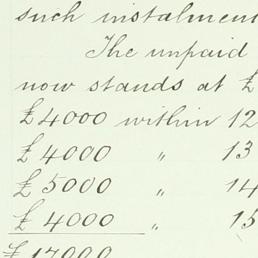 such instalmen
The unpaid
now stands at £
£4000 within 12
£4000 " 13
£5000 " 14
£4000 " 15
£17000